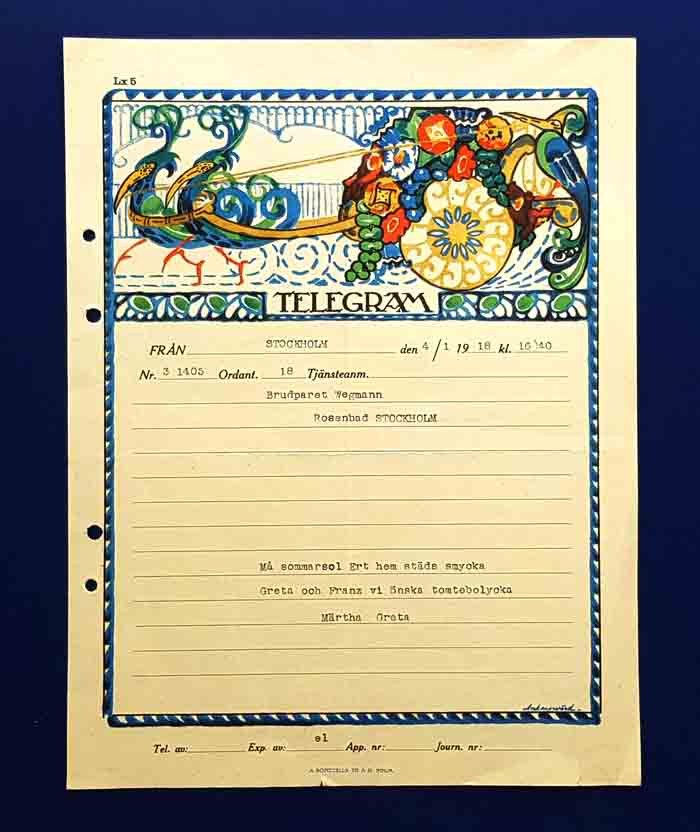 Lx 5
TELEGRAM
FRÅN STOCKHOLM den 4/1 1918 kl. 16 40
Nr. 3 1405 Ordant. 18 Tjänsteanm.
Brudparet Wegmann
Rosenbad STOCKHOLM
Må sommarsol Ert hem städs smycka
Greta och Franz vi önska tomtebolycka
Märtha Greta
el
Tel. av: Exp. av: App. nr: Journ. nr: